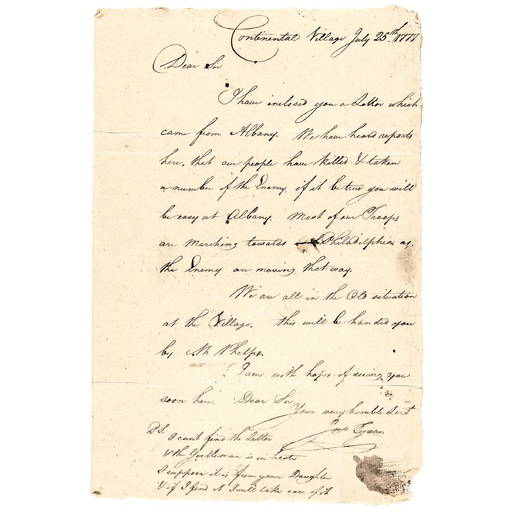 Continental Village July 25th 1777
Dear Sir
I have inclosed you a Letter which
came from Albany. We have heard reports
here, that our people have killed & taken
a number of the Enemy, if it be true you will
be easy at Albany. Most of our Troops
are marching towards Philadelphia as
the Enemy are moving that way.
We are all in the Old situation
at the Village. this will be handed you
by Mr Phelps.
I am with hopes of seeing you
soon here, Dear Sir
Your very humble Servt
D S.
I cant find the Letter
& the Gentleman is in haste
I suppose it is from your Daughter
& if I find it I will take care of it